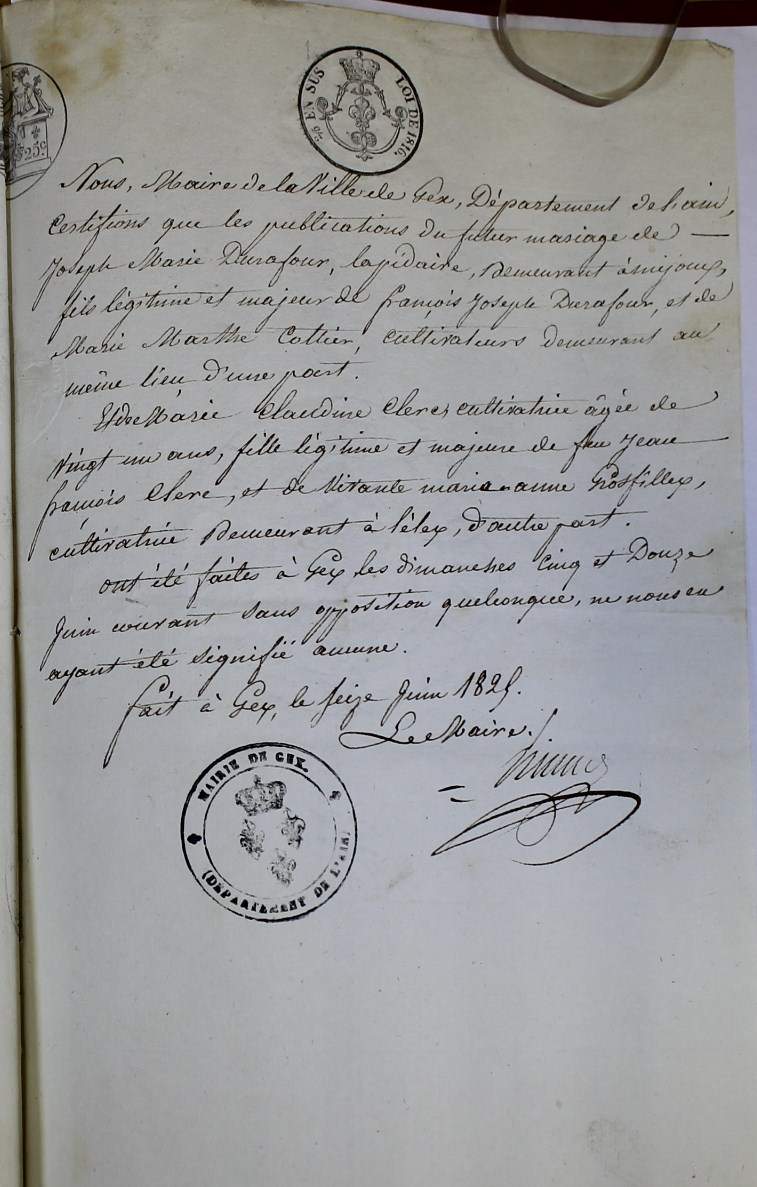 EN SUS LOI DE 1816.
25c
Nous, Maire de la Ville de Gex, Département de l'ain,
Certifions que les publications du futur mariage de —
Joseph Marie Durafour, lapidaire, Demeurant à mijoux,
fils légitime et majeur de françois Joseph Durafour, et de
Marie Marthe Cottier, cultivateurs demeurant au
même lieu d'une part.
Et de Marie Claudine Clerc, cultivatrice âgée de
vingt un ans, fille légitime et majeure de feu Jean
françois Clerc, et de vivante marie-anne Grosfillex,
cultivatrice Demeurant à lélex, d'autre part.
ont été faites à Gex les dimanches Cinq et Douze
Juin courant sans opposition quelconque, ne nous en
ayant été signifié aucune.
fait à Gex, le seize Juin 1825.
Le Maire.
MAIRIE DE GEX.
(DEPARTEMENT DE L'AIN)